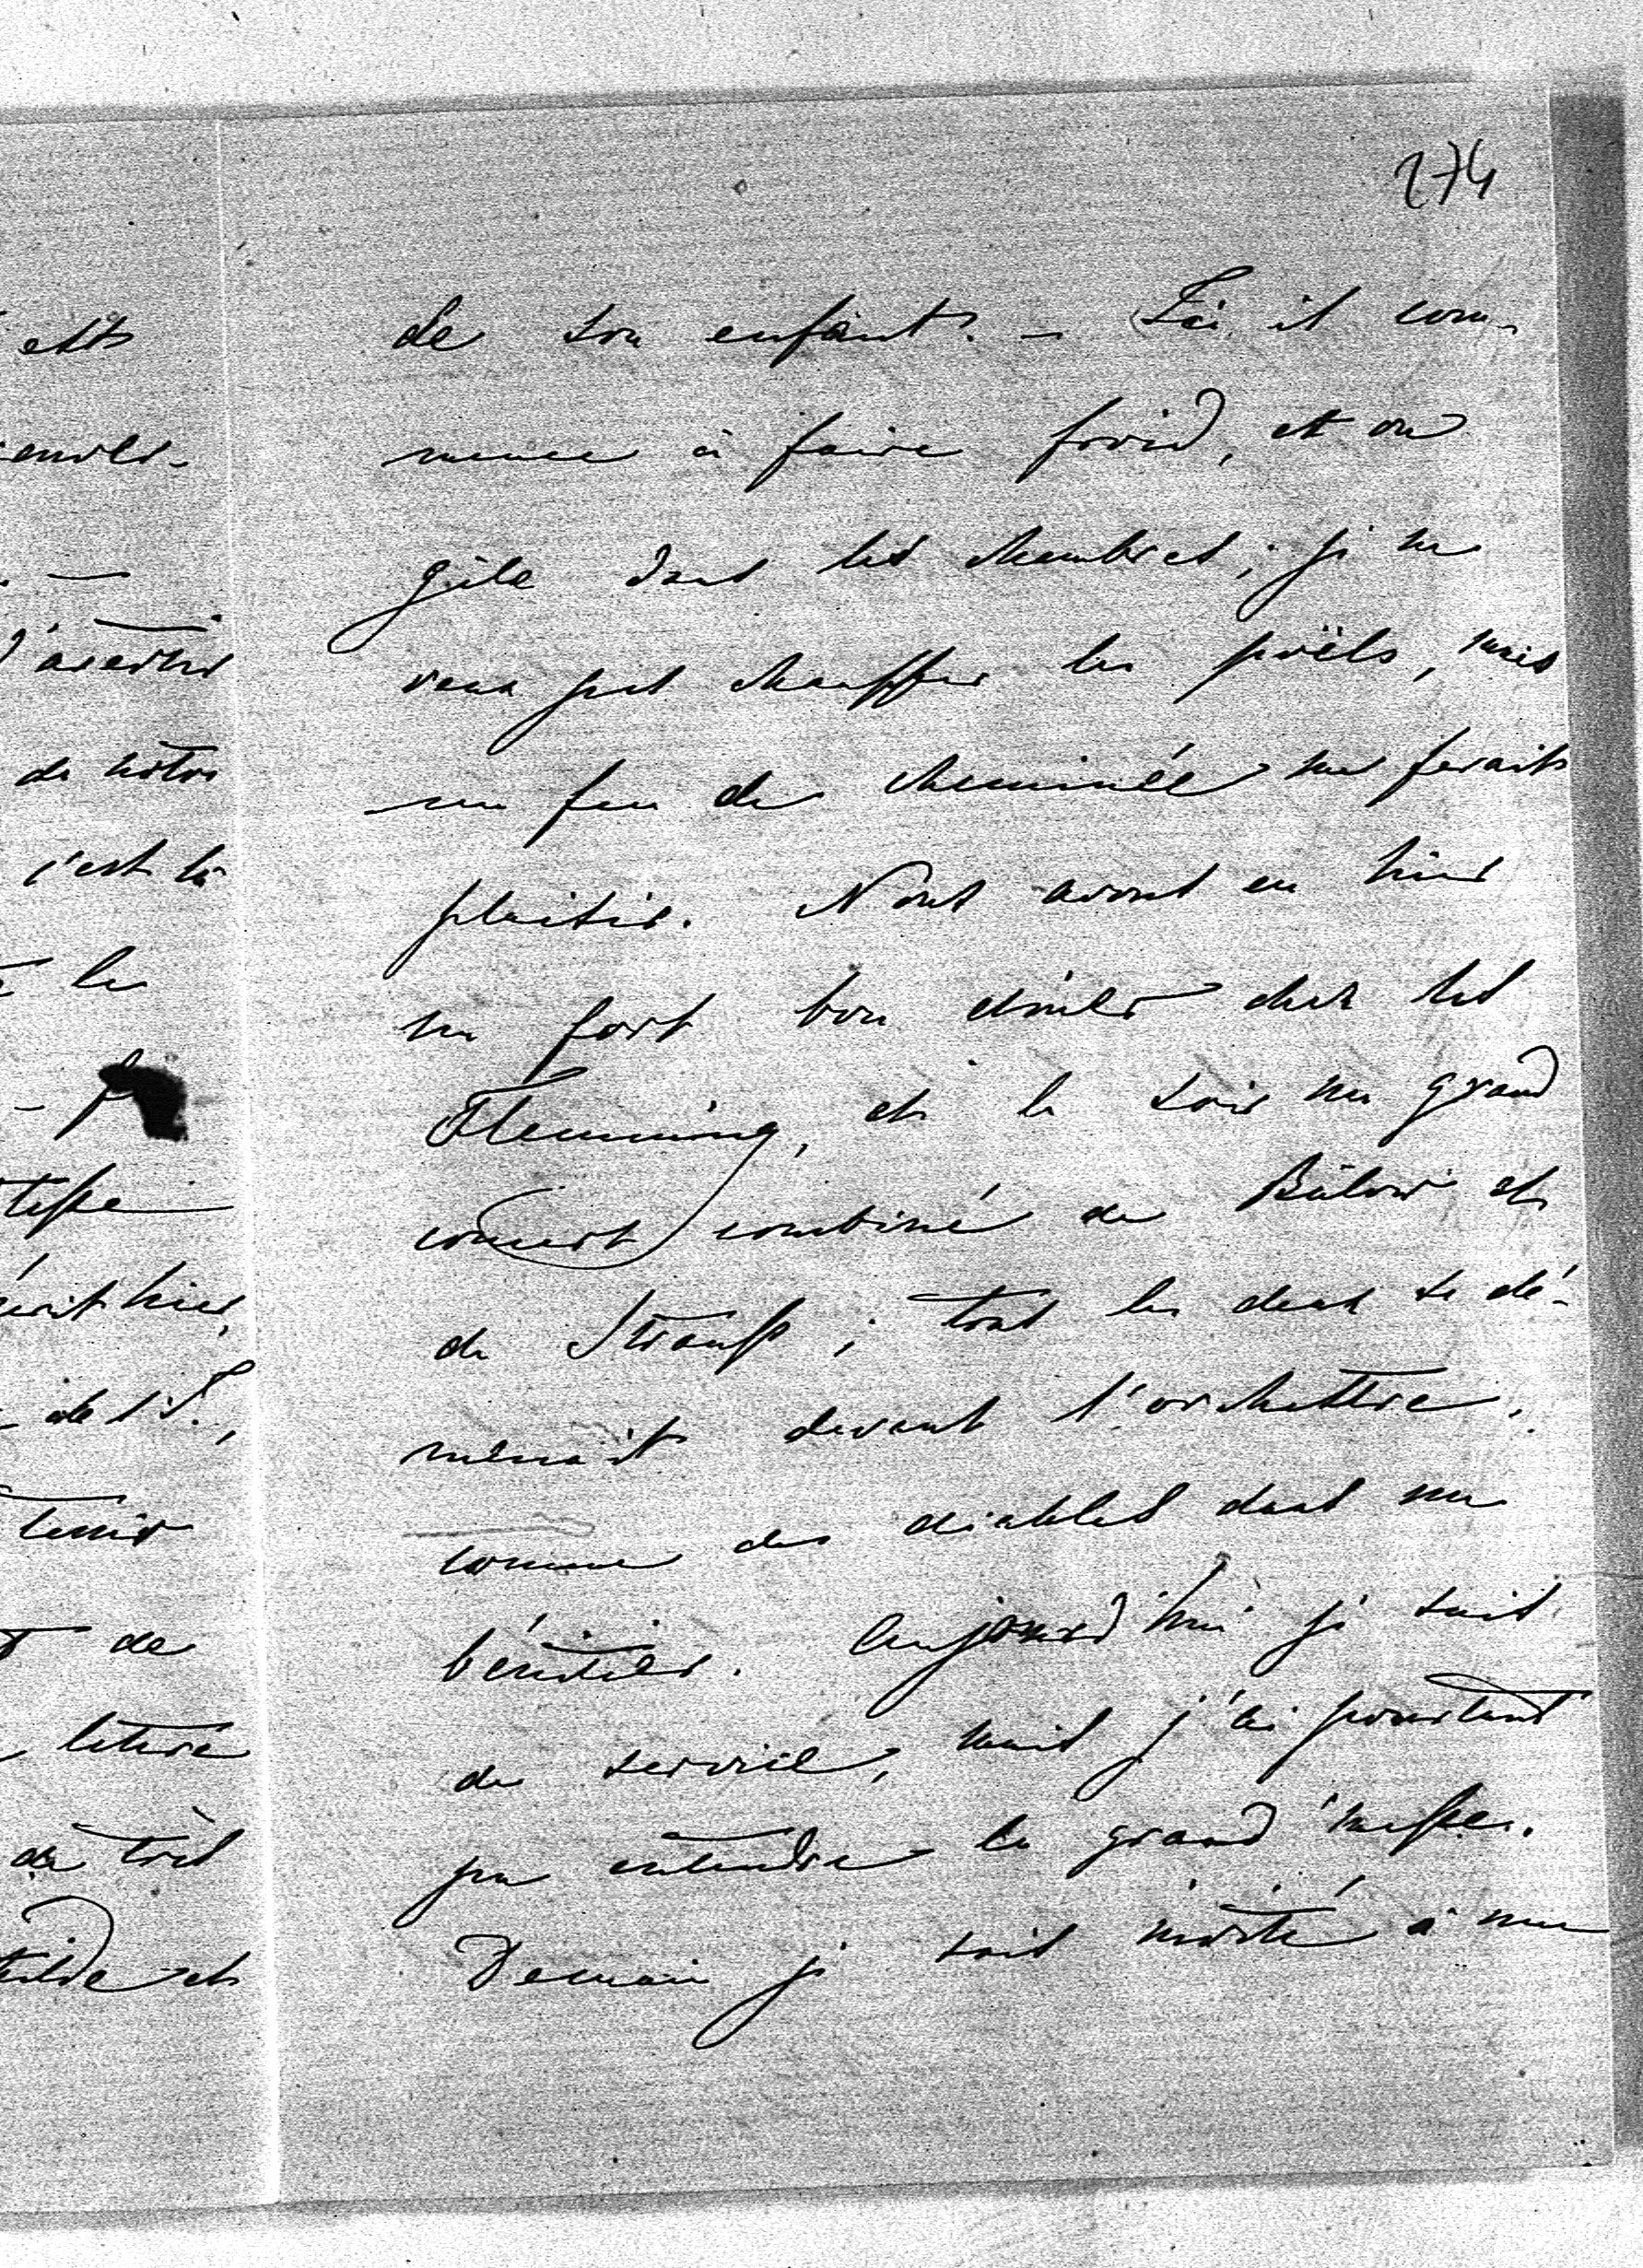 274
de son enfant. – Ici il com-
mence à faire froid, et on
gèle dans les chambres; je ne
veux pas chauffer les poëls, mais
un feu de cheminée me ferait
plaisir. Nous avons eu hier
un fort bon dîner chez les
Flemming, et le soir un grand
concert combiné de Bülow et
de Strauß; tous les deux se dé-
menait devant l'orchestre,
comme des diables dans un
bénitier. Aujourd'hui je suis
de service, mais j'ai pourtant
pu entendre la grand'messe.
Demain je suis invité à une
et
d'avertir
de notre
c'est là
le
hier,
tenir
de
de très
et